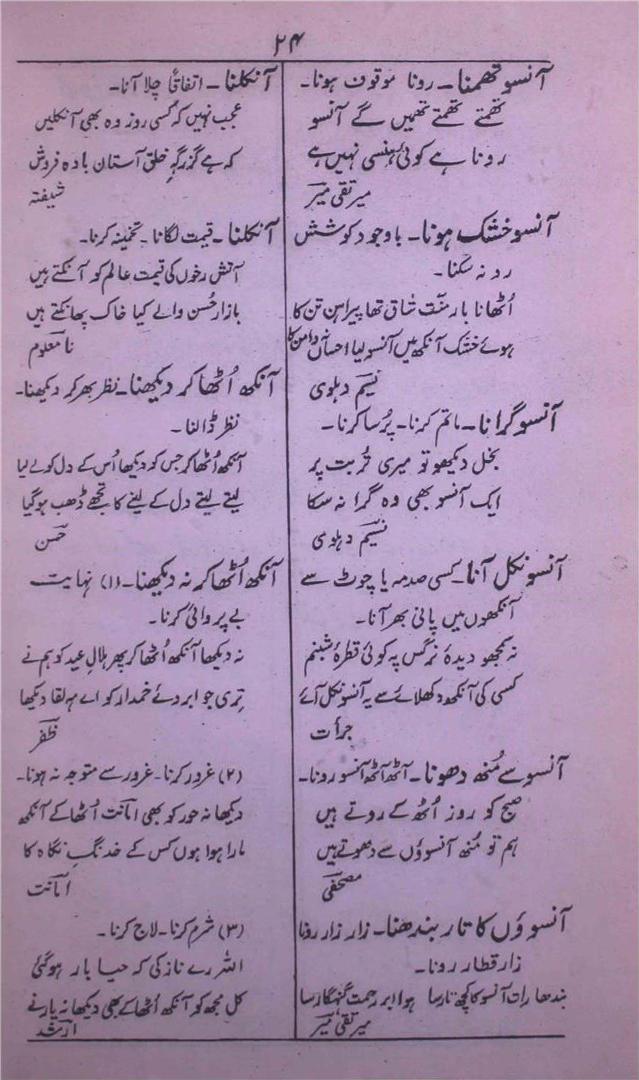 ۲۴
آنسو تھمنا۔ رونا موقوف ہونا۔
تھمتے تھمتے تھمیں گے آنسو
رونا ہے کوئی ہنسی نہیں ہے
میر تقی میر
آنسو خشک ہونا۔ باوجود کوشش
رو نہ سکنا۔
اُٹھانا بارِ منّت شاق تھا پیراہن تن کا
ہوئے خشک آنکھ میں آنسو لیا احساں نہ دامن کا
نسیم دہلوی
آنسو گرانا۔ ماتم کرنا۔ پُرسا کرنا۔
بخل دیکھو تو میری تُربت پر
ایک آنسو بھی وہ گرا نہ سکا
نسیم دہلوی
آنسو نکل آنا۔ کسی صدمہ یا چوٹ سے
آنکھوں میں پانی بھر آنا۔
نہ سمجھو دیدۂ نرگس پہ کوئی قطرۂ شبنم
کسی کی آنکھ دکھلائے سے یہ آنسو نکل آئے
جرأت
آنسو سے مُنھ دھونا۔ آٹھ آٹھ آنسو رونا۔
صبح کو روز اُٹھ کے روتے ہیں
ہم تو مُنھ آنسوؤں سے دھوتے ہیں
مصحفی
آنسوؤں کا تار بندھنا۔ زار زار رونا
زار قطار رونا۔
بندھا رات آنسو کا کچھ تار سا ہوا ابر رحمت گنہگار سا
میر تقی میر
آنکلنا۔ اتفاقاً چلا آنا۔
عجب نہیں کہ کسی روز وہ بھی آنکلیں
کہ ہے گزرگہِ خلق آستان بادہ فروش
شیفتہ
آنکنا۔ قیمت لگانا۔ تخمینہ کرنا۔
آتش رخوں کی قیمت عالم کو آنکتے ہیں
بازار حُسن والے کیا خاک پھانکتے ہیں
نامعلوم
آنکھ اُٹھا کر دیکھنا۔ نظر بھر کر دیکھنا۔
نظر ڈالنا۔
آنکھ اُٹھا کر جس کو دیکھا اُس کے دل کو لے لیا
لیتے لیتے دل کے لینے کا تجھے ڈھب ہو گیا
حسن
آنکھ اُٹھا کر نہ دیکھنا۔ (۱) نہایت
بے پروائی کرنا۔
نہ دیکھا آنکھ اُٹھا کر پھر ہلالِ عید کو ہم نے
تری جو ابروئے خمدار کو اے مہ لقا دیکھا
ظفر
(۲) غرور کرنا۔ غرور سے متوجہ نہ ہونا۔
دیکھا نہ حور کو بھی امانت اُٹھا کے آنکھ
مارا ہوا ہوں کس کے خدنگِ نگاہ کا
امانت
(۳) شرم کرنا۔ لاج کرنا۔
اللہ رے ناز کی کہ حیا بار ہو گئی
کل مجھ کو آنکھ اُٹھا کے بھی دیکھا نہ یار نے
ارشد